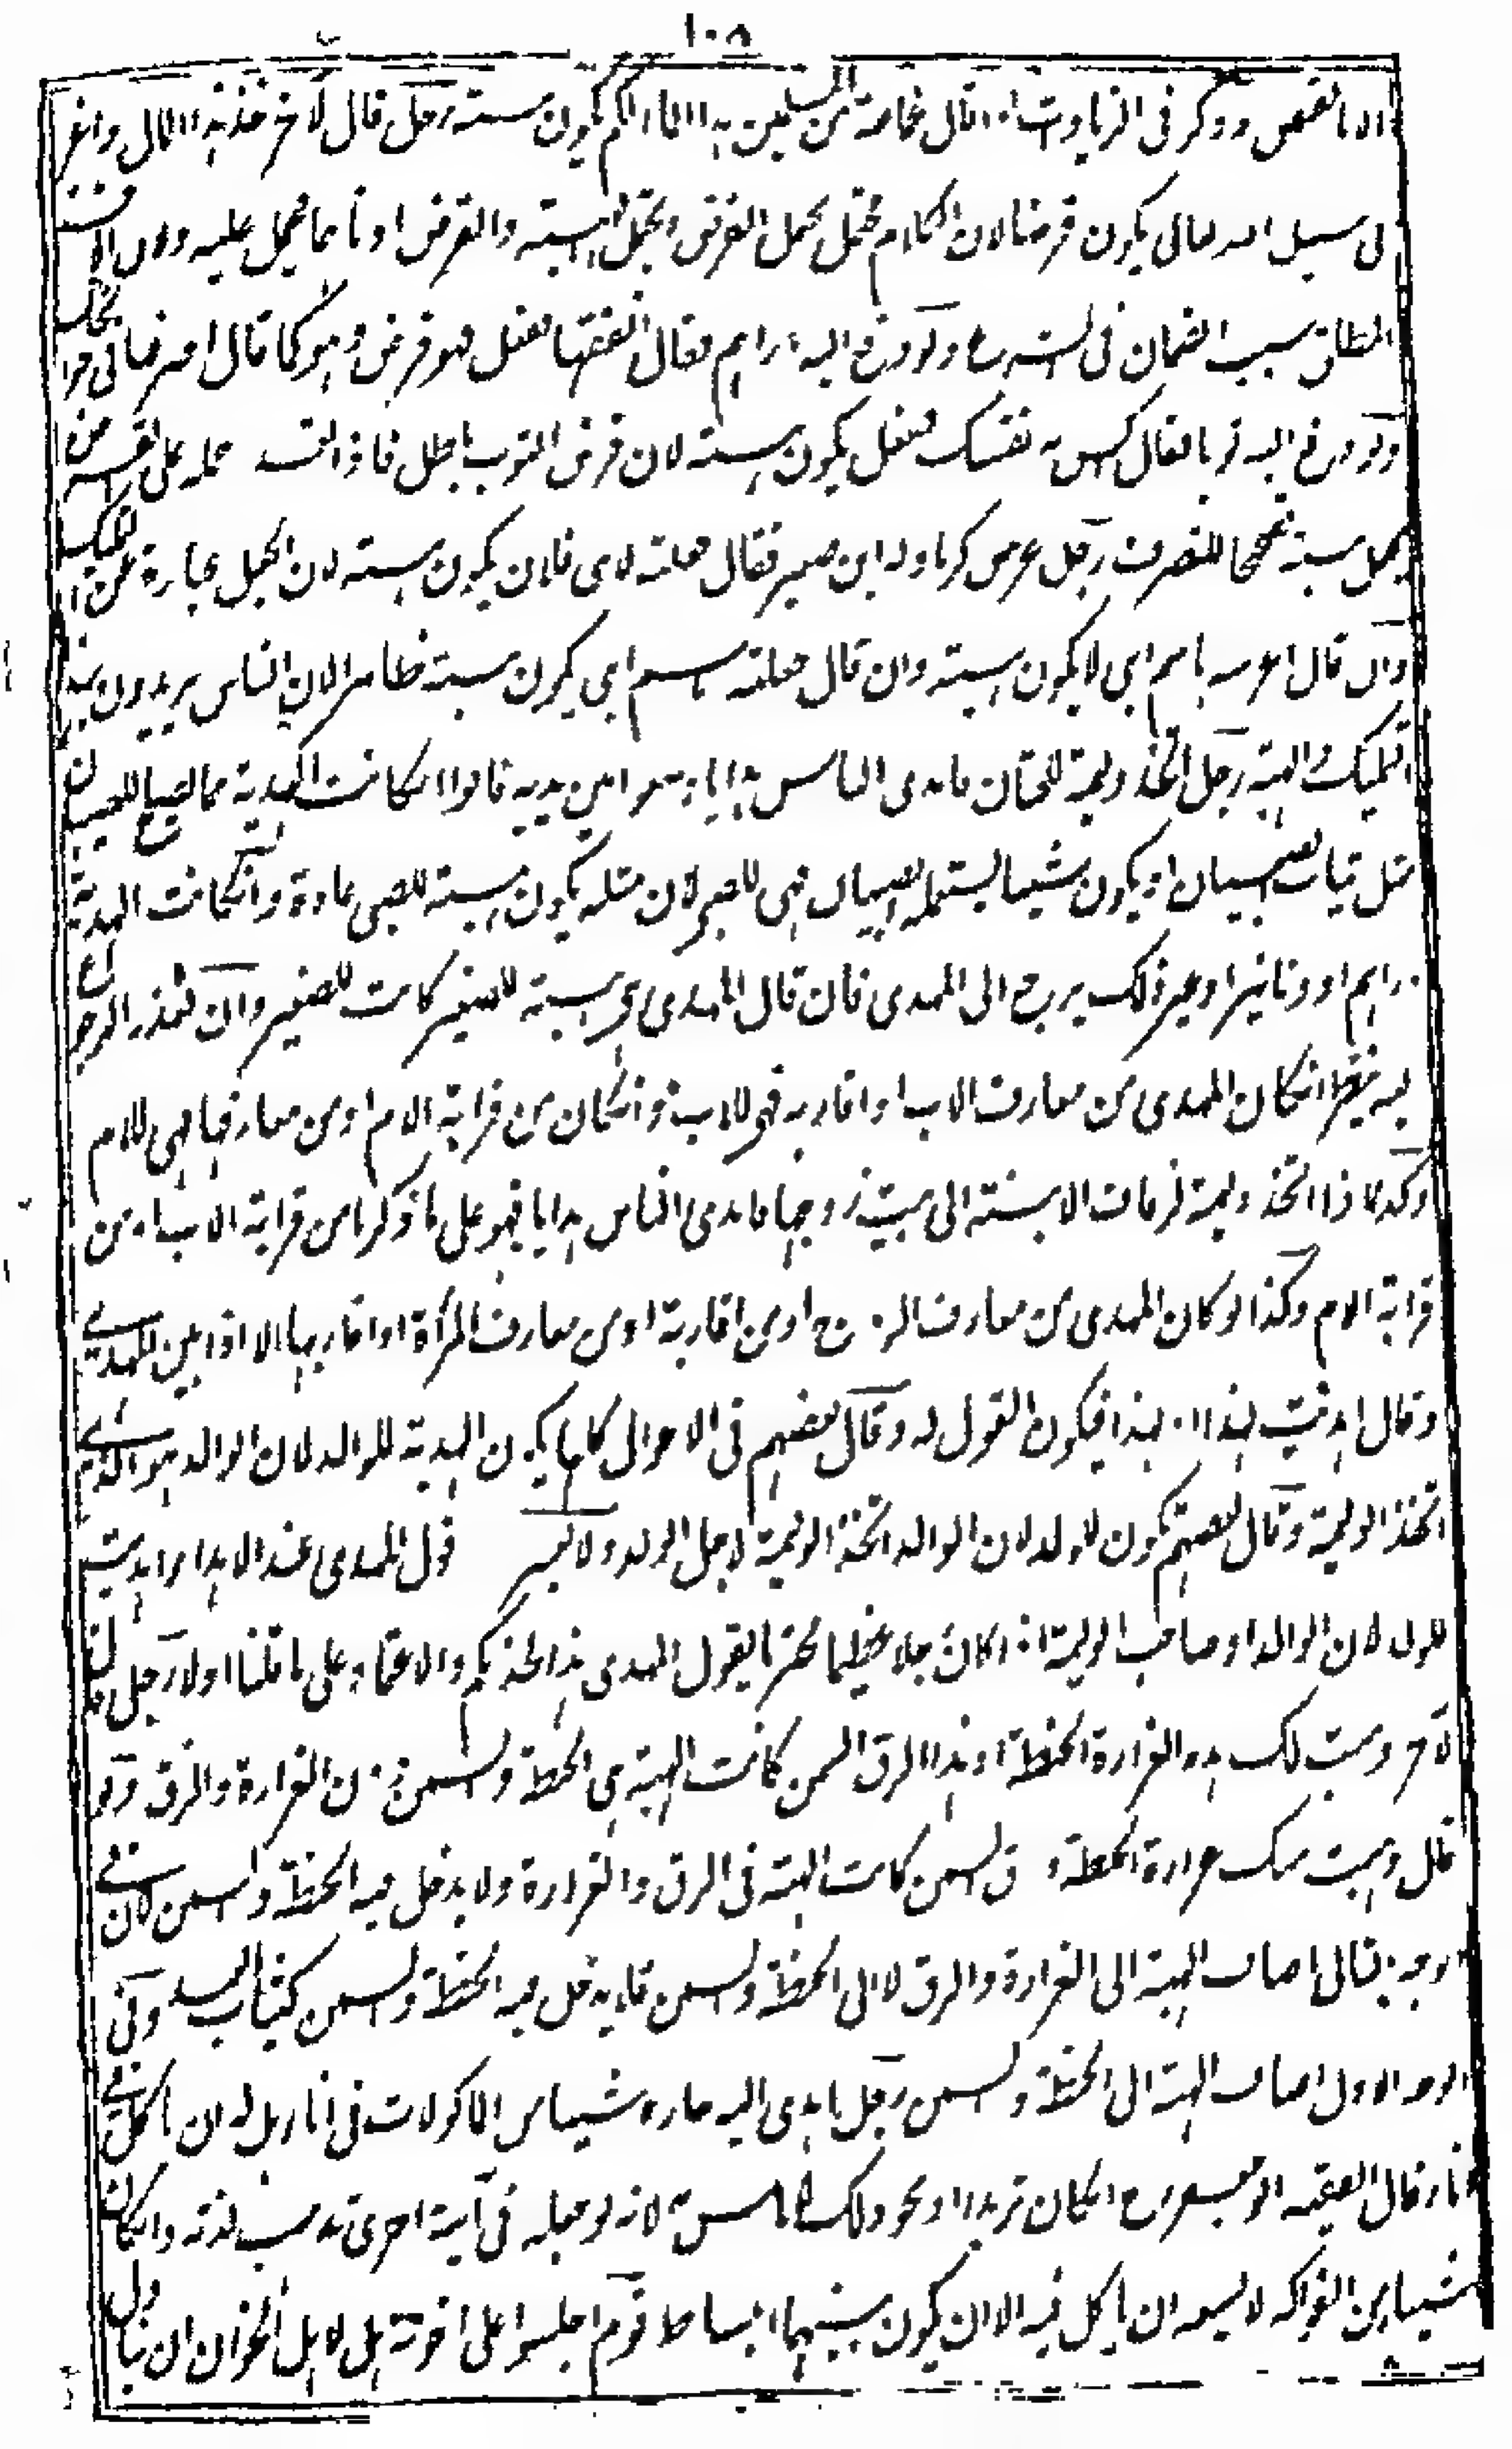 ١٠٥
الا ما نقص وذكر فى الزيادات اذا قال غاصة من المسلمين هذا المال لكم يكون هبة رجل قال لآخر خذ هذا المال واغز
فى سبيل الله تعالى يكون قرضا لان الكلام محتمل يحتمل القرض ويحتمل الهبة والقرض ادناهما فيحمل عليه ولان الاخذ
المطلق سبب الضمان فى الشرع ولو دفع اليه دراهم فقال انفقها ففعل فهو قرض وهو كما قال اصرفها فى حوائجك
ولو دفع اليه ثوبا فقال اكس به نفسك ففعل يكون هبة لان قرض الثوب باطل فاذا تعذر حمله على القرض
يحمل هبة تصحيحا للتصرف رجل غرس كرما وله ابن صغير فقال جعلته لابنى فلان يكون هبة لان الجعل عبارة عن التمليك
وان قال اغرسه باسم ابنى لا يكون هبة وان قال جعلته باسم ابنى يكون هبة ظاهرا لان الناس يريدون بهذا
التمليك والهبة رجل اتخذ وليمة للختان فاهدى الناس هدايا ووضعوا بين يديه قالوا ان كانت الهدية مما يصلح للصبيان
مثل ثياب الصبيان او يكون شيئا يستعمله الصبيان فهى للصغير لان مثله يكون هبة للصبى عادة وان كانت الهدية
دراهم او دنانير او غير ذلك يرجع الى المهدى فان قال المهدى هى هبة للصغير كانت للصغير وان تعذر الرجوع
اليه ينظر ان كان المهدى من معارف الاب او اقاربه فهى للاب وان كان من قرابة الام او من معارفها فهى للام
وكذلك اذا اتخذ وليمة لزفاف الابنة الى بيت زوجها فاهدى الناس هدايا فهو على ما ذكرنا من قرابة الاب او من
قرابة الام وكذا لو كان المهدى من معارف الزوج او من اقاربه او من معارف المرأة او اقاربها الا اذا بين المهدى
وقال اهديت لهذا او لهذا فيكون القول له وقال بعضهم فى الاحوال كلها يكون الهدية للوالد لان الوالد هو الذى
اتخذ الوليمة وقال بعضهم تكون للولد لان الوالد اتخذ الوليمة لاجل الولد ولا يعتبر قول المهدى عند الاهداء اهديت
للولد لان الوالد او صاحب الوليمة اذا كان رجلا عظيما محترما يقول المهدى هذا لخدمكم والاعتماد على ما قلنا اولا رجل قال
لآخر وهبت لك هذه الغرارة الحنطة او هذا الزق السمن كانت الهبة هى الحنطة والسمن دون الغرارة والزق ولو
قال وهبت منك غرارة الحنطة وزق السمن كانت الهبة فى الزق والغرارة ولا يدخل فيه الحنطة والسمن لان فى
الوجه الثانى اضاف الهبة الى الغرارة والزق لا الى الحنطة والسمن فلا يدخل فيه الحنطة والسمن كثياب العبد وفى
الوجه الاول اضاف الهبة الى الحنطة والسمن رجل اهدى اليه جاره شيئا من المأكولات فى اناء هل له ان ياكل فى
انائه قال الفقيه ابو جعفر رح ان كان ثريدا او نحو ذلك لا بأس به لانه لو جعله فى آنية اخرى تذهب لذته وان كان
شيئا من الفواكه لا يسعه ان ياكل فيه الا ان يكون بينهما انبساط قوم اجلسوا على اخونة هل لاهل الخوان ان يناول